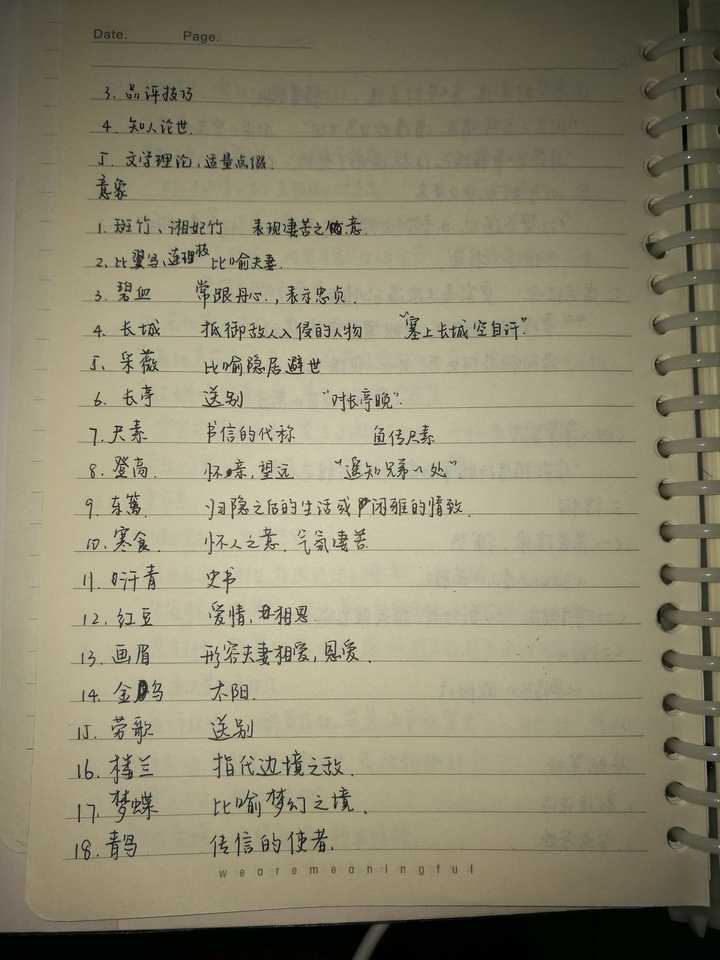 Date.          Page.
3. 品评技巧
4. 知人论世.
5. 文学理论,适量点缀.
意象
1. 斑竹、湘妃竹 表现凄苦之情意.
2. 比翼鸟、连理枝 比喻夫妻.
3. 碧血 常跟丹心.,表示忠贞.
4. 长城 抵御敌人入侵的人物 "塞上长城空自许".
5. 采薇 比喻隐居避世
6. 长亭 送别 "对长亭晚".
7. 尺素 书信的代称 鱼传尺素
8. 登高. 怀亲,望远 "遥知兄弟~处"
9. 东篱. 归隐之后的生活或闲雅的情致.
10. 寒食. 怀人之意. 气氛凄苦
11. 汗青 史书
12. 红豆 爱情,相思
13. 画眉 形容夫妻相爱,恩爱.
14. 金乌 太阳.
15. 劳歌 送别
16. 楼兰 指代边境之敌.
17. 梦蝶 比喻梦幻之境.
18. 青鸟 传信的使者.
wearemeaningful